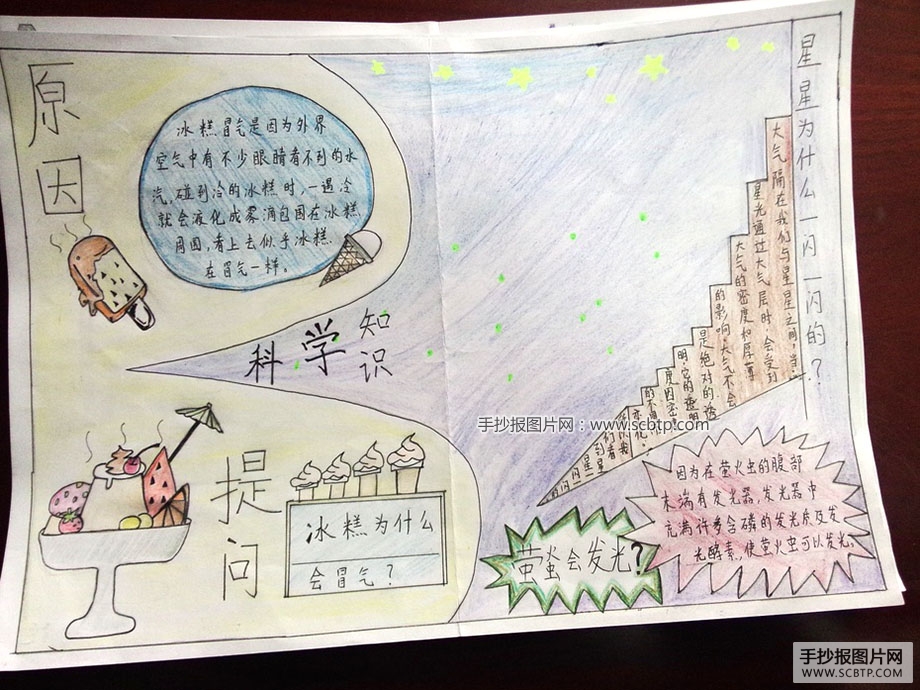 原因
冰糕冒气是因为外界
空气中有不少眼睛看不到的水
汽,碰到冷的冰糕时,一遇冷
就会液化成雾滴包围在冰糕
周围,看上去似乎冰糕
在冒气一样。
科学知识
提问
冰糕为什么
会冒气?
星星为什么一闪一闪的?
大气隔在我们与星星之间,当
星光通过大气层时,会受到
大气的密度和厚薄
的影响。大气不会
是绝对的透
明,它的透明
度因密
的不
变化,
们看
到星
闪闪
萤虫会发光?
因为在萤火虫的腹部
末端有发光器,发光器中
充满许多含磷的发光质及发
光酵素,使萤火虫可以发光。
手抄报图片网:www.scbtp.com
手抄报图片网
SCBTP.COM